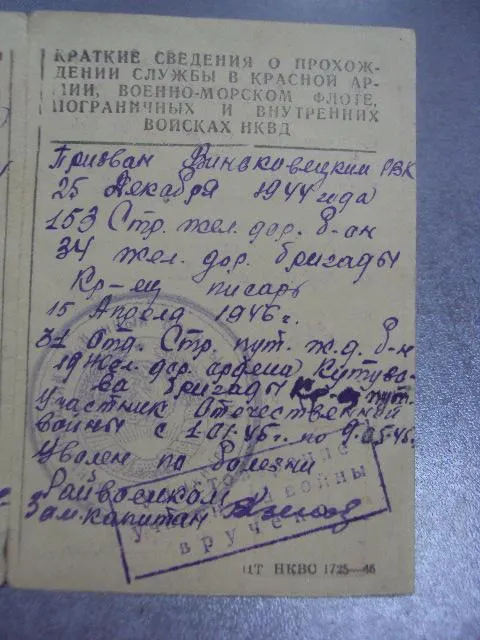 КРАТКИЕ СВЕДЕНИЯ О ПРОХОЖ-
ДЕНИИ СЛУЖБЫ В КРАСНОЙ АР-
МИИ, ВОЕННО-МОРСКОМ ФЛОТЕ,
ПОГРАНИЧНЫХ И ВНУТРЕННИХ
ВОЙСКАХ НКВД
Призван Виньковецким РВК
25 Декабря 1944 года
153 Стр. жел. дор. б-он
34 жел. дор. бригады
Кр-ец писарь
15 Апреля 1946 г.
31 Отд. Стр. пут. ж.д. б-н
19 Жел. дор. ордена Кутузо-
ва бригады Кр-ец пут.
Участник Отечественной
войны с 1.01.45г. по 9.05.45г.
Уволен по болезни
Райвоенком
Зам. капитан
Удостоверение
участника войны
вручено
ЦТ НКВС 1725—46